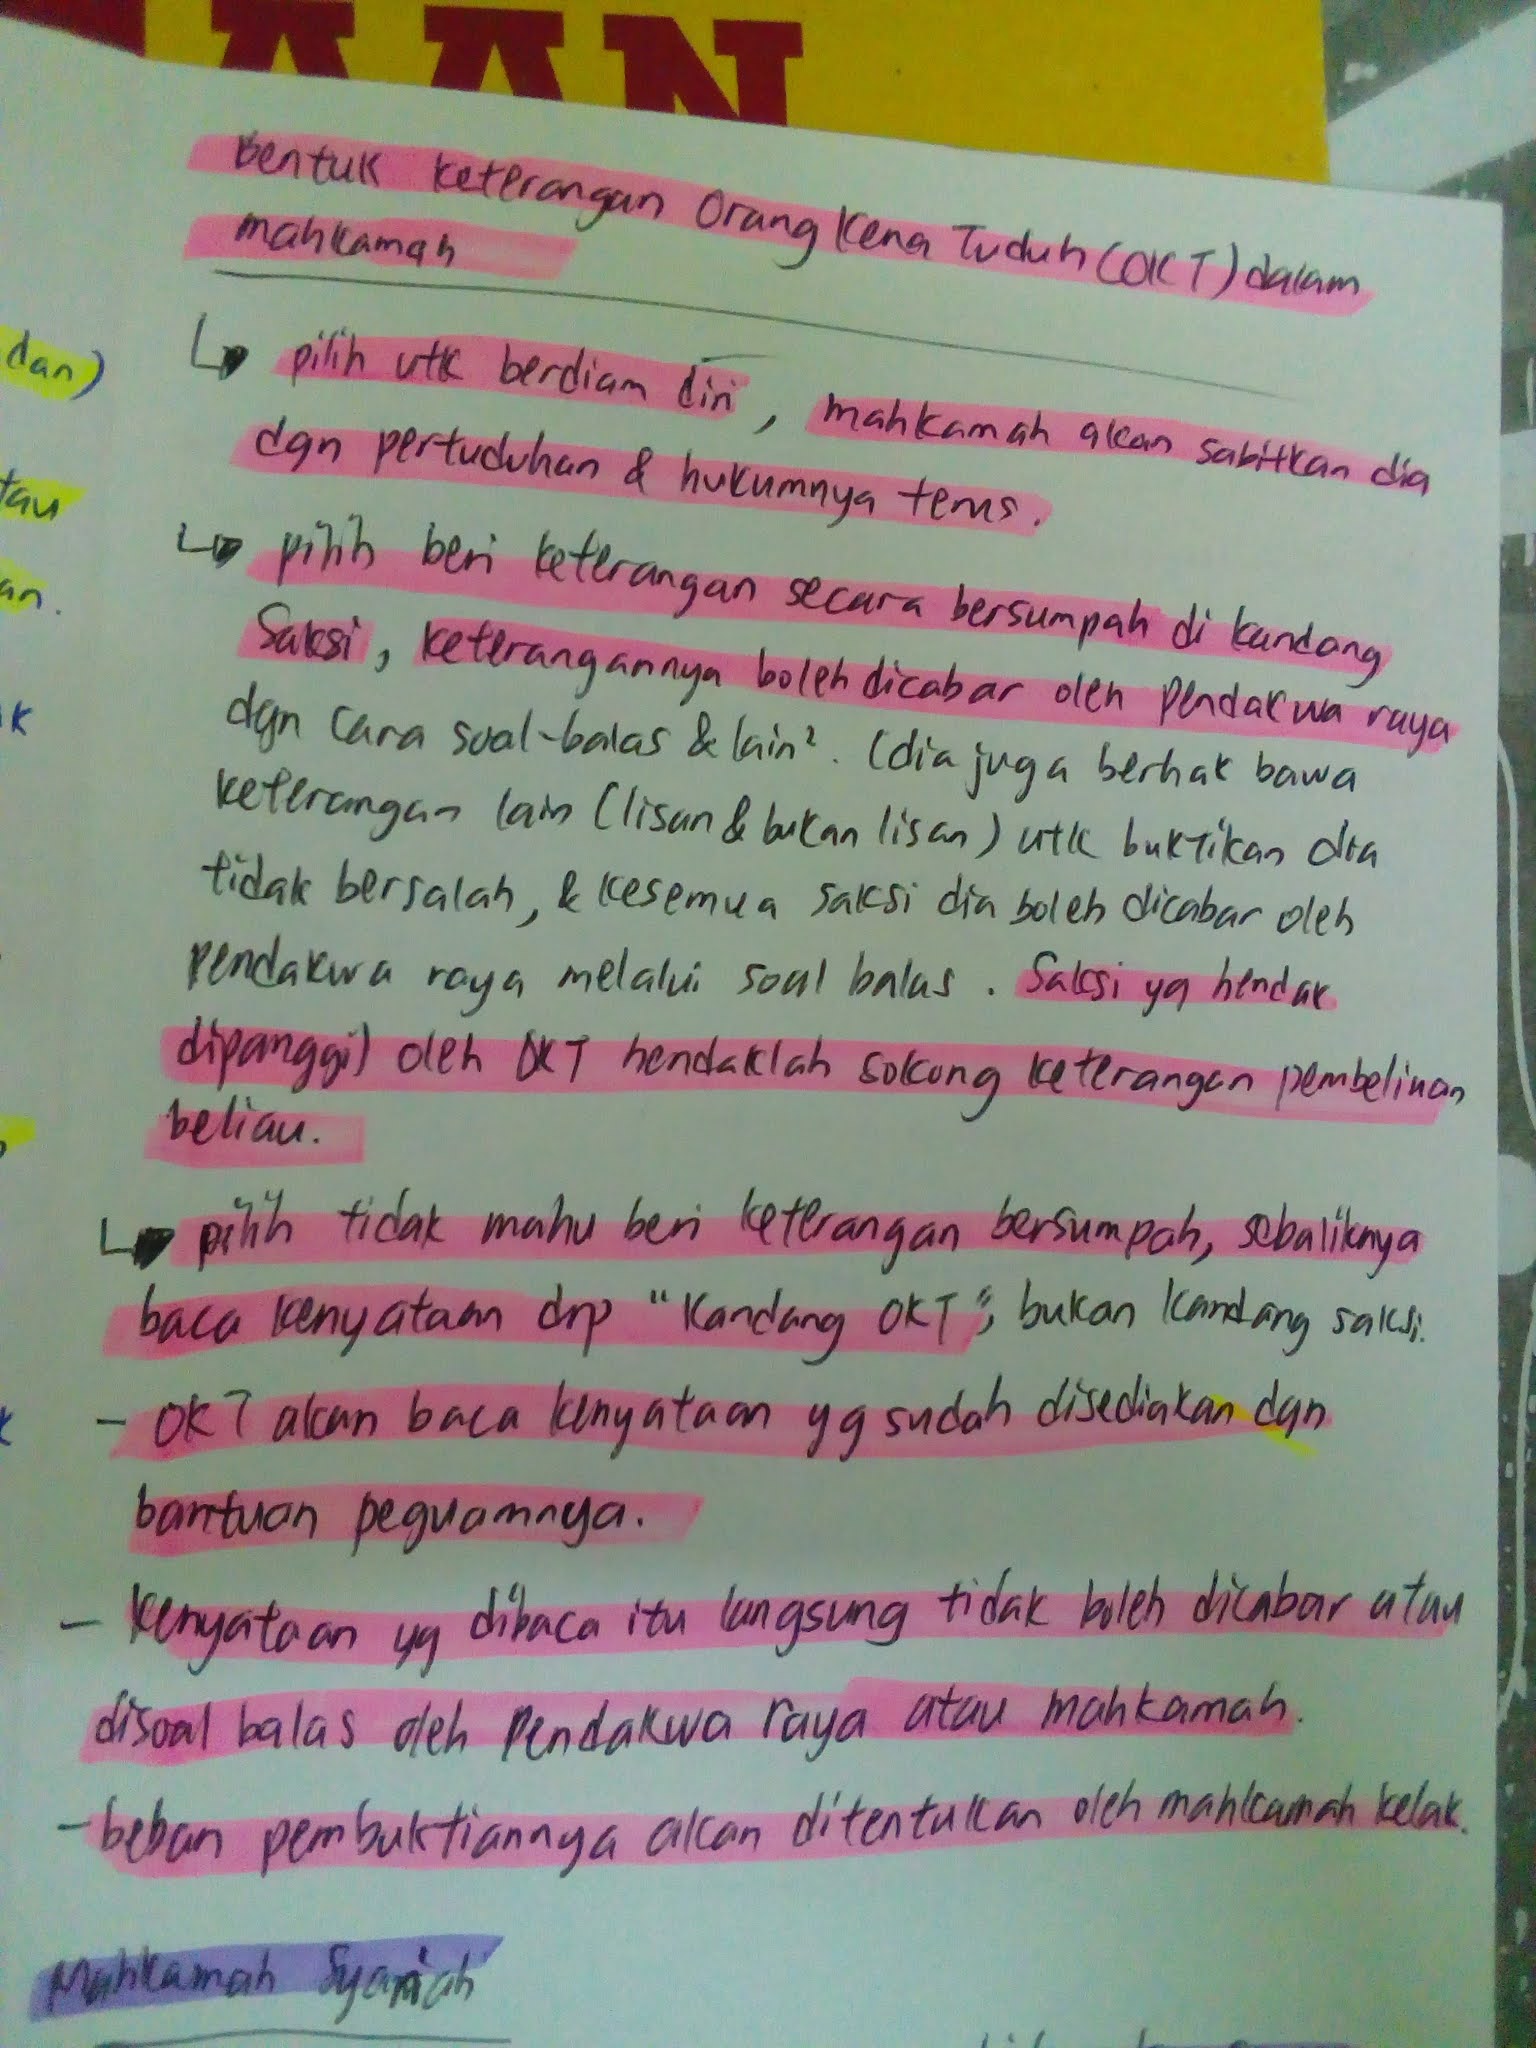 AAN
Bentuk keterangan Orang Kena Tuduh (OKT) dalam
mahkamah
dan)
↳ pilih utk berdiam diri, mahkamah akan sabitkan dia
dgn pertuduhan & hukumnya terus.
tau
↳ pilih beri keterangan secara bersumpah di kandang
an.
Saksi, keterangannya boleh dicabar oleh pendakwa raya
dgn cara soal-balas & lain². (dia juga berhak bawa
keterangan lain (lisan & bukan lisan) utk buktikan dia
tidak bersalah, & kesemua saksi dia boleh dicabar oleh
pendakwa raya melalui soal balas. Saksi yg hendak
dipanggil oleh OKT hendaklah sokong keterangan pembelaan
beliau.
↳ pilih tidak mahu beri keterangan bersumpah, sebaliknya
baca kenyataan drp "Kandang OKT", bukan kandang saksi.
- OKT akan baca kenyataan yg sudah disediakan dgn
bantuan peguamnya.
- Kenyataan yg dibaca itu langsung tidak boleh dicabar atau
disoal balas oleh Pendakwa raya atau mahkamah.
- beban pembuktiannya akan ditentukan oleh mahkamah kelak.
Mahkamah Syariah